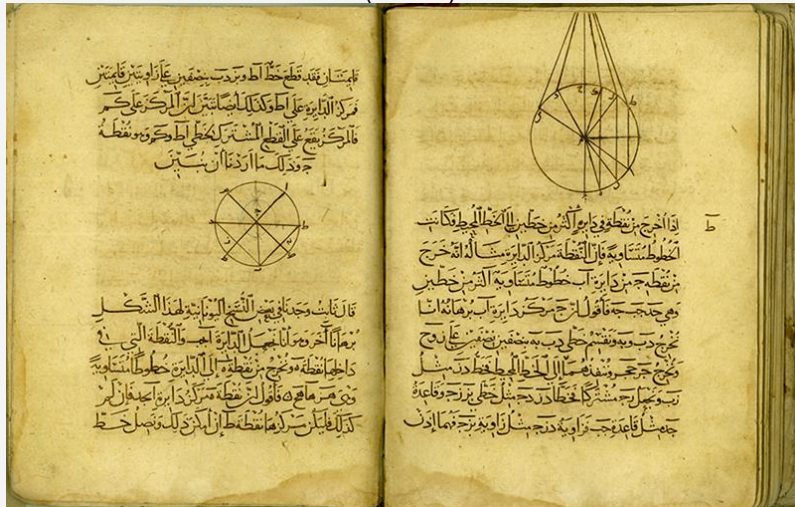 ط
إذا أخرج من نقطة في دايرة أكثر من خطين إلى الخط المحيط فكانت
الخطوط متساوية فإن النقطة مركز الدايرة مثاله انه خرج
من نقطة ج من دايرة اب خطوط متساوية اكثر من خطين
وهي جد جب جه فاقول ان ج مركز دايرة اب برهانه انا
نخرج دب وبه ونقسم خطي دب به بنصفين نصفين على ز وح
ونخرج جز جح وننفذهما إلى الخط المحيط فخط دز مثل
زب ونجعل مشتركا فخطا دز زج مثل خطي بز زج وقاعدة
جد مثل قاعدة جب فزاوية دزج مثل زاوية بزج فهما إذن
قايمتان فقد قطع خط اط وتر دب بنصفين على زاويتين قايمتين
فمركز الدايرة على اط وكذلك ايضا نبين ان المركز على كم
فالمركز يقع على القطع المشترك لخطي اط وكم وهو نقطة
ج وذلك ما اردنا ان نبين
قال ثابت وجدنا في بعض النسخ اليونانية لهذا الشكل
برهانا آخر وهو انا نجعل الدايرة والنقطة التي في
داخلها نقطة ه ونخرج من نقطة ه إلى الدايرة خطوطا متساوية
وهي فاقول ان نقطة ه مركز دايرة فان لم
كذلك فليكن مركزها نقطة ط ان امكن ذلك ونصل خط